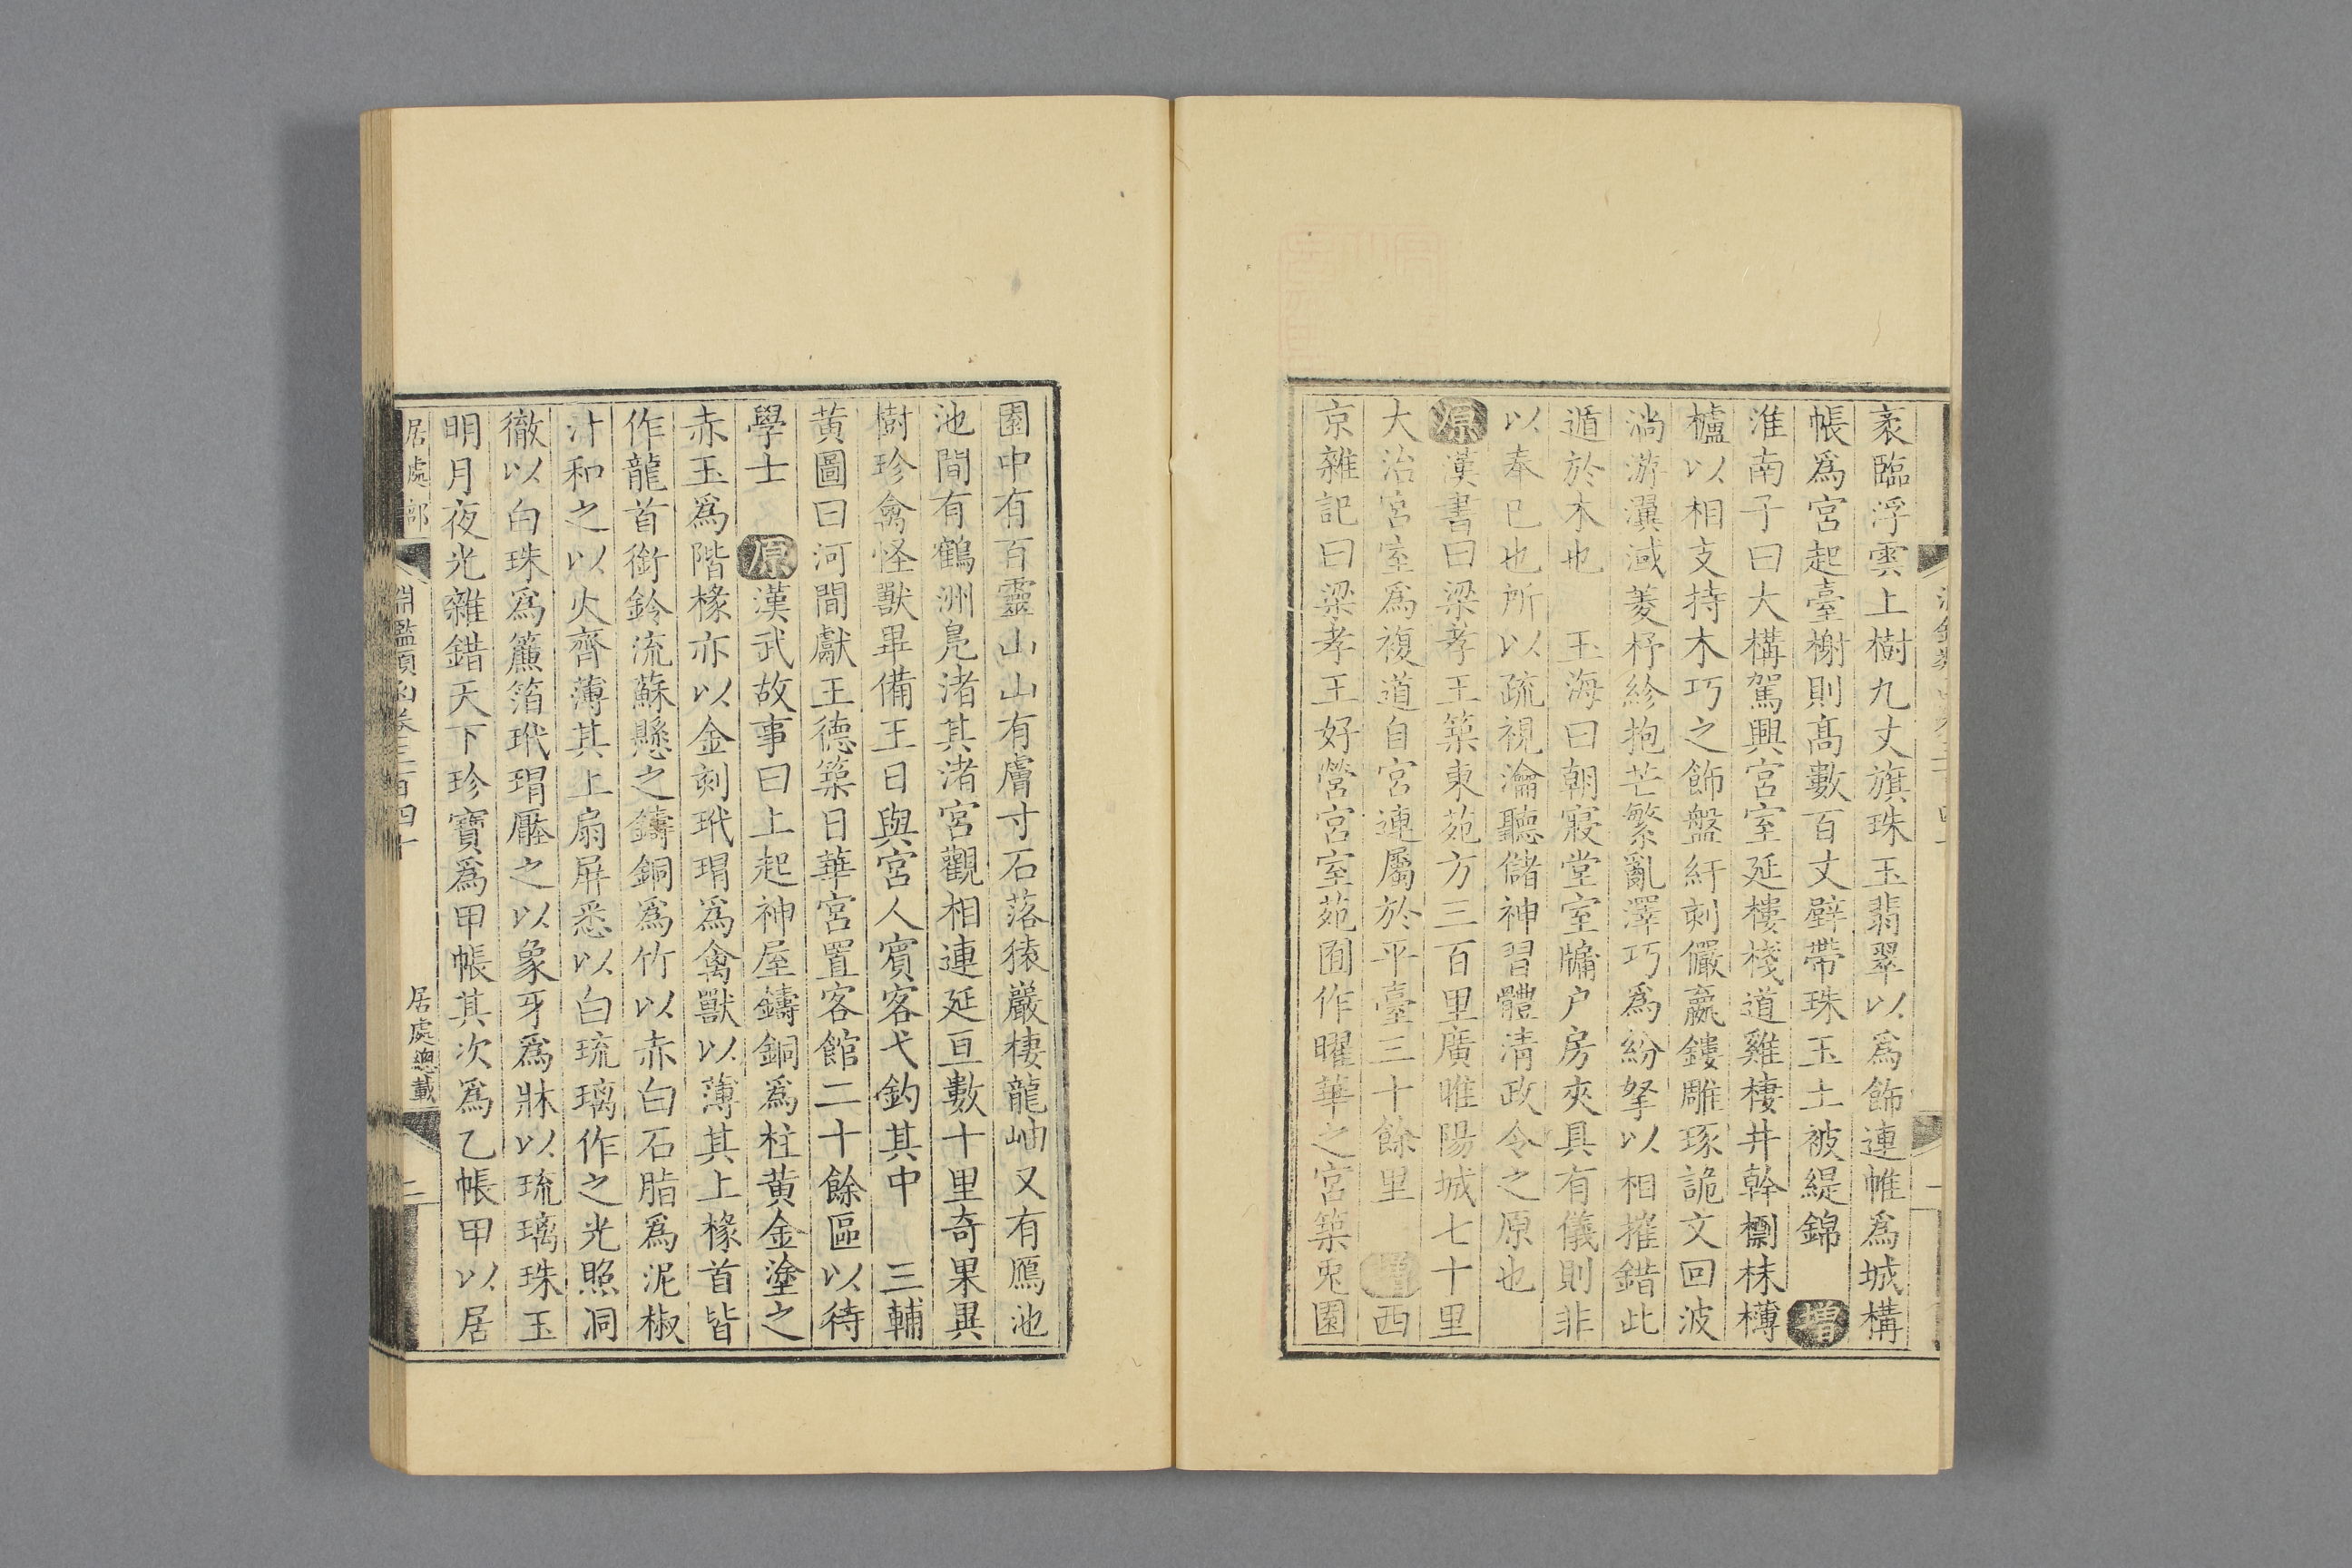 袤臨浮雲上樹九丈旗珠玉翡翠以爲飾連帷爲城構
帳爲宮起臺榭則高數百丈壁帶珠玉土被緹錦 增
淮南子曰大構駕興宮室延樓棧道雞棲井幹檦枺欂
櫨以相支持木巧之飾盤紆刻儼嬴鏤雕琢詭文回波
淌游瀷淢菱杼紾抱芒繁亂澤巧爲紛挐以相摧錯此
遁於木也 玉海曰朝寢堂室牖户房夾具有儀則非
以奉已也所以疏視瀹聽儲神習體清政令之原也
原漢書曰梁孝王築東苑方三百里廣睢陽城七十里
大治宮室爲複道自宮連屬於平臺三十餘里 增西
京雜記曰梁孝王好營宮室苑囿作曜華之宮築兎園
園中有百靈山山有膚寸石落猿巖棲龍岫又有鴈池
池間有鶴洲鳧渚其渚宮觀相連延亘數十里奇果異
樹珍禽怪獸畢備王日與宮人賓客弋釣其中 三輔
黄圖曰河間獻王德築日華宮置客館二十餘區以待
學士 原漢武故事曰上起神屋鑄銅爲柱黄金塗之
赤玉爲階椽亦以金刻玳瑁爲禽獸以薄其上椽首皆
作龍首銜鈴流蘇懸之鑄銅爲竹以赤白石脂爲泥椒
汁和之以火齊薄其上扇屏悉以白琉璃作之光照洞
徹以白珠爲簾箔玳瑁壓之以象牙爲牀以琉璃珠玉
明月夜光雜錯天下珍寶爲甲帳其次爲乙帳甲以居
居處部 淵鑑類函卷三百四十 居處總載 二